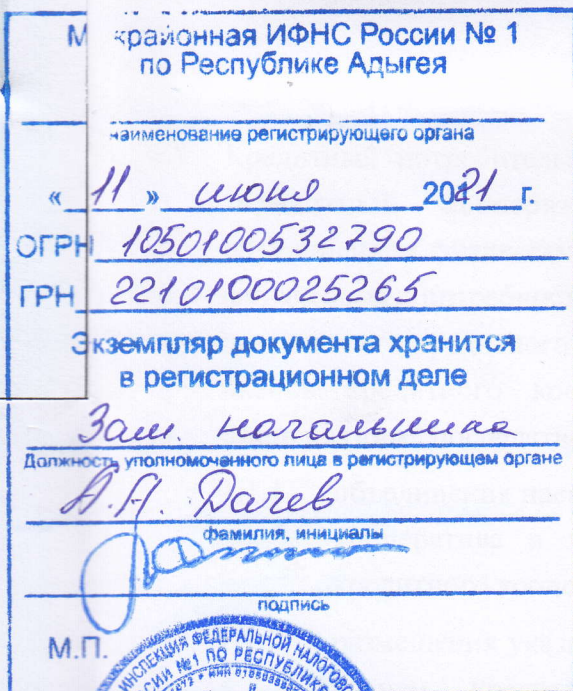 М крайонная ИФНС России № 1
по Республике Адыгея
наименование регистрирующего органа
« 11 » июня 2021 г.
ОГРН 1050100532790
ГРН 2210100025265
Экземпляр документа хранится
в регистрационном деле
Зам. начальника
Должность уполномоченного лица в регистрирующем органе
А.А. Дачев
фамилия, инициалы
подпись
М.П.
ИНСПЕКЦИЯ ФЕДЕРАЛЬНОЙ НАЛОГОВО
СИИ №1 ПО РЕСПУБЛИКЕ